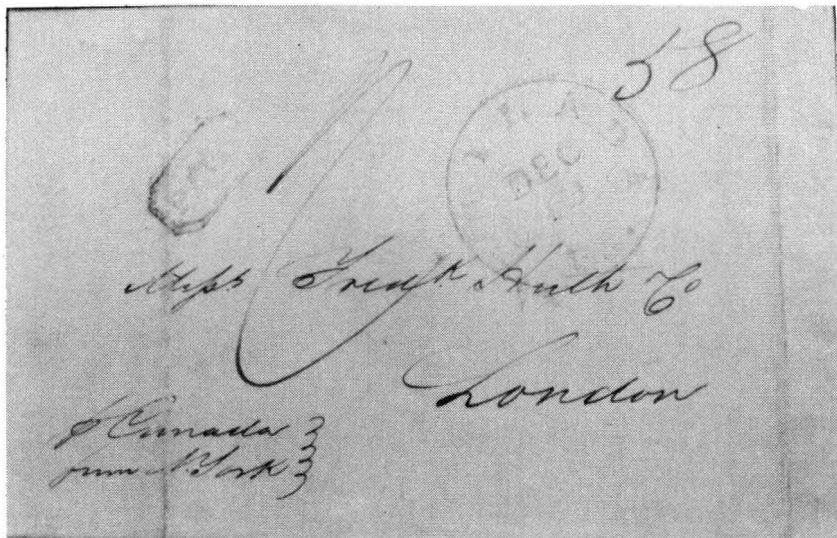 58
DEC
Mess Fredk Huth Co
London
p Canada
from N. York